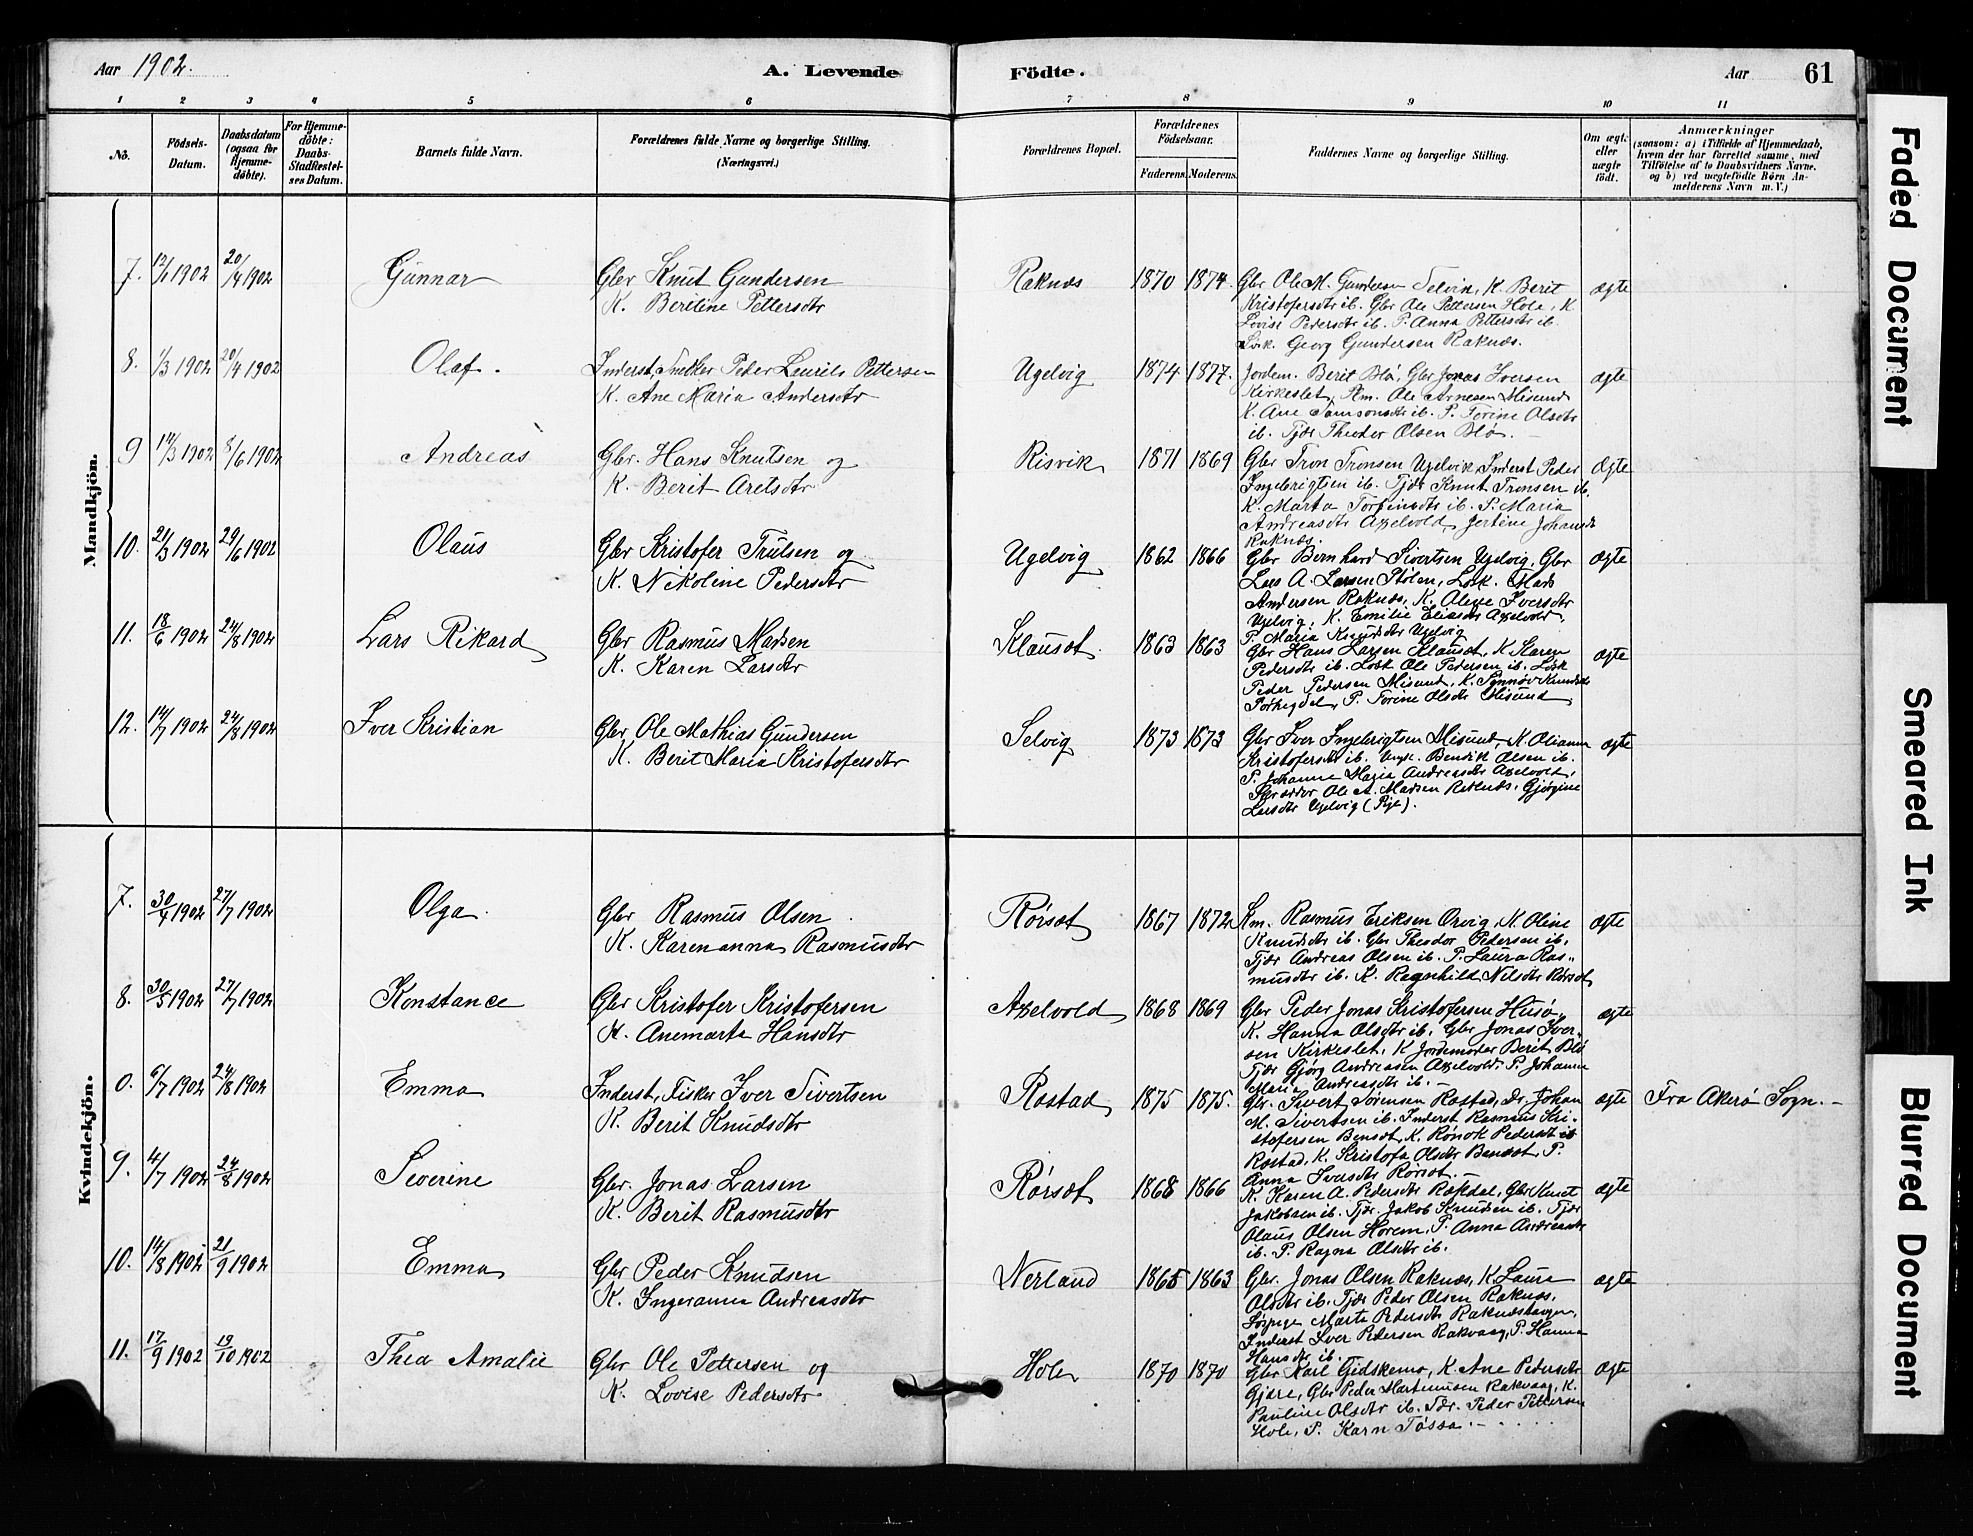 Aar 1902.
A. Levende
Födte.
Aar
61
1 2 3 4 5 6 7 8 9 10 11
No.
Födsels-Datum.
Daabsdatum (ogsaa for Hjemmedöbte).
For Hjemmedöbte: Daabs-Stadfæstelses Datum.
Barnets fulde Navn.
Forældrenes fulde Navne og borgerlige Stilling.
(Næringsvei.)
Forældrenes Bopæl.
Forældrenes Födselsaar.
Faderens. Moderens.
Faddernes Navne og borgerlige Stilling.
Om ægte eller uægte födt.
Anmærkninger
(saasom: a) i Tilfælde af Hjemmedaab,
hvem der har forrettet samme, med
Tilföielse af to Daabsvidners Navne,
og b) ved uægtefödte Börn An-
melderens Navn m. V.)
Mandkjön.
7. 12/1 1902 20/4 1902 Gunnar Gbr Knut Gundersen
K. Beritine Pettersdtr
Raknæs 1870 1874 ægte
Gbr Ole M. Gundersen Selvik, K. Berit
Kristofersdtr ib. Gbr Ole Pettersen Hole, K.
Lovise Pedersdtr ib. P. Anna Pettersdtr ib.
Georg Gundersen Raknæs.
8. 1/3 1902 20/4 1902 Olaf. Inderst, Snekker Peder Laurits Pettersen
K. Ane Maria Andersdtr
Ugelvig 1874 1877. ægte
Jordem. Berit Blö, Gbr Jonas Iversen
Kirkeslet, Km. Ole Arnesen Misund
K. Ane Samsonsdtr ib. P. Torine Olsdtr
ib. Tjdr Theodor Olsen Blö.
9 14/3 1902 8/6 1902 Andreas Gbr. Hans Knutsen og
K. Berit Aretsdtr
Risvik 1871 1869 Ægte
Gbr Tron Tronsen Ugelvik, Inderst Peder
Ingebrigtsen ib. Tjdr Knut Tronsen ib.
K. Marta Torfinsdtr ib. P. Maria
Andreasdtr Axelvold, Jertine Johansdtr
Raknæs.
10. 21/3 1902 29/6 1902 Olaus Gbr Kristofer Trulsen og
K. Nikoline Pedersdtr
Ugelvig 1862 1866 Ægte
Gbr Bernhard Sivertsen Ugelvig, Gbr
Lars A. Larsen Stölen, Mads
Andersen Raknæs, K. Oline Iversdtr
Ugelvig, K. Emilie Eliasdtr Axelvold,
P. Maria Knudsdtr Ugelvig
11. 18/6 1902 24/8 1902 Lars Rikard Gbr Rasmus Madsen
K. Karen Larsdtr
Klauset 1863 1863 ægte
Gbr Hans Larsen Klauset, K. Karen
Pedersdtr ib. Ole Pedersen ib.
Peder Pedersen Misund, K. Synnöv Knudsdtr
P. Torine Olsdtr Misund
12. 14/7 1902 24/8 1902 Iver Kristian Gbr Ole Mathias Gundersen
K. Berit Maria Kristofersdtr
Selvig 1873 1873 ægte
Gbr Iver Ingebrigtsen Misund, K. Olianna
Kristofersdtr ib. Ungk. Bendik Olsen ib.
P. Johanne Maria Andreasdtr Axelvold,
Skrædder Ole A. Madsen Raknæs, Gjörgine
Larsdtr Ugelvig (Pige).
Kvindekjön.
7. 30/4 1902 27/7 1902 Olga. Gbr Rasmus Olsen
K. Karenanna Rasmusdtr
Rörset 1867 1872 ægte
Km. Rasmus Eriksen Orvig, K. Oline
Knudsdtr ib. Gbr Theodor Pedersen ib.
Tjdr Andreas Olsen ib. P. Laura Ras-
musdtr ib. K. Ragnhild Nilsdtr Rörset
8. 30/5 1902 27/7 1902 Konstance Gbr Kristofer Kristofersen
K. Anemarta Hansdtr
Axelvold 1868 1869 ægte
Gbr Peder Jonas Kristofersen Husö,
K. Hanna Olsdtr ib. Gbr Jonas Iver-
sen Kirkeslet, K. Jordemoder Berit Blö
Tjdr Gjörg Andreasen Axelvold. P. Johanne
Maria Andreasdtr ib.
0. 6/7 1902 24/8 1902 Emma Inderst, Fisker Iver Sivertsen
K. Berit Knudsdtr
Röstad 1875 1875. ægte Fra Akerö Sogn.
Gbr. Sivert Sörensen Röstad, Dr. Johan
M. Sivertsen ib. Inderst Rasmus Kri-
stofersen Bensöt, K. Rönok Pedersdtr
Röstad, K. Kristofa Olsdtr Bensöt, P.
Anna Iversdtr Rörset.
9. 4/7 1902 24/8 1902 Severine Gbr. Jonas Larsen
K. Berit Rasmusdtr
Rörset 1868 1866 ægte
K. Karen A. Pedersdtr Gbr Knut
Jakobsen ib. Tjdr. Jakob Knudsen ib. Tjdr
Olaus Olsen Horem, P. Anna Andreasdtr
ib. P. Ragna Olsdtr ib.
10. 14/8 1902 21/9 1902 Emma Gbr Peder Knudsen
K. Ingeranna Andreasdtr
Nerland 1865 1863 ægte
Gbr. Jonas Olsen Raknæs, K. Laura
Olsdtr ib. Tjdr Peder Olsen Raknæs,
Marta Pedersdtr Raknæshaugen,
Inderst Iver Pedersen Rakvaag, P. Hanna
Hansdtr ib.
11. 17/9 1902 19/10 1902 Thea Amalie Gbr Ole Pettersen og
K. Lovise Pedersdtr
Hole 1870 1870 Ægte
Gbr Karl Gidskemo, K. Ane Pedersdtr
Gjære, Gbr Peder Martinusen Rakvaag, K.
Pauline Olsdtr ib. Peder Pettersen
Hole, P. Karn Tössa.
Faded Document
Smeared Ink
Blurred Document